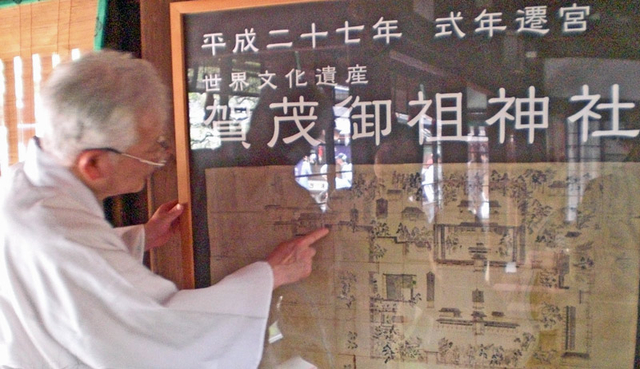 平成二十七年 式年遷宮
世界文化遺産
賀茂御祖神社